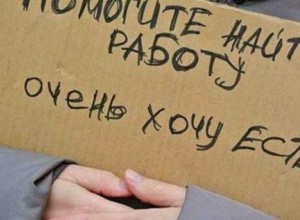 ПОМОГИТЕ НАЙТ
РАБОТУ
очень хочу ЕСТ